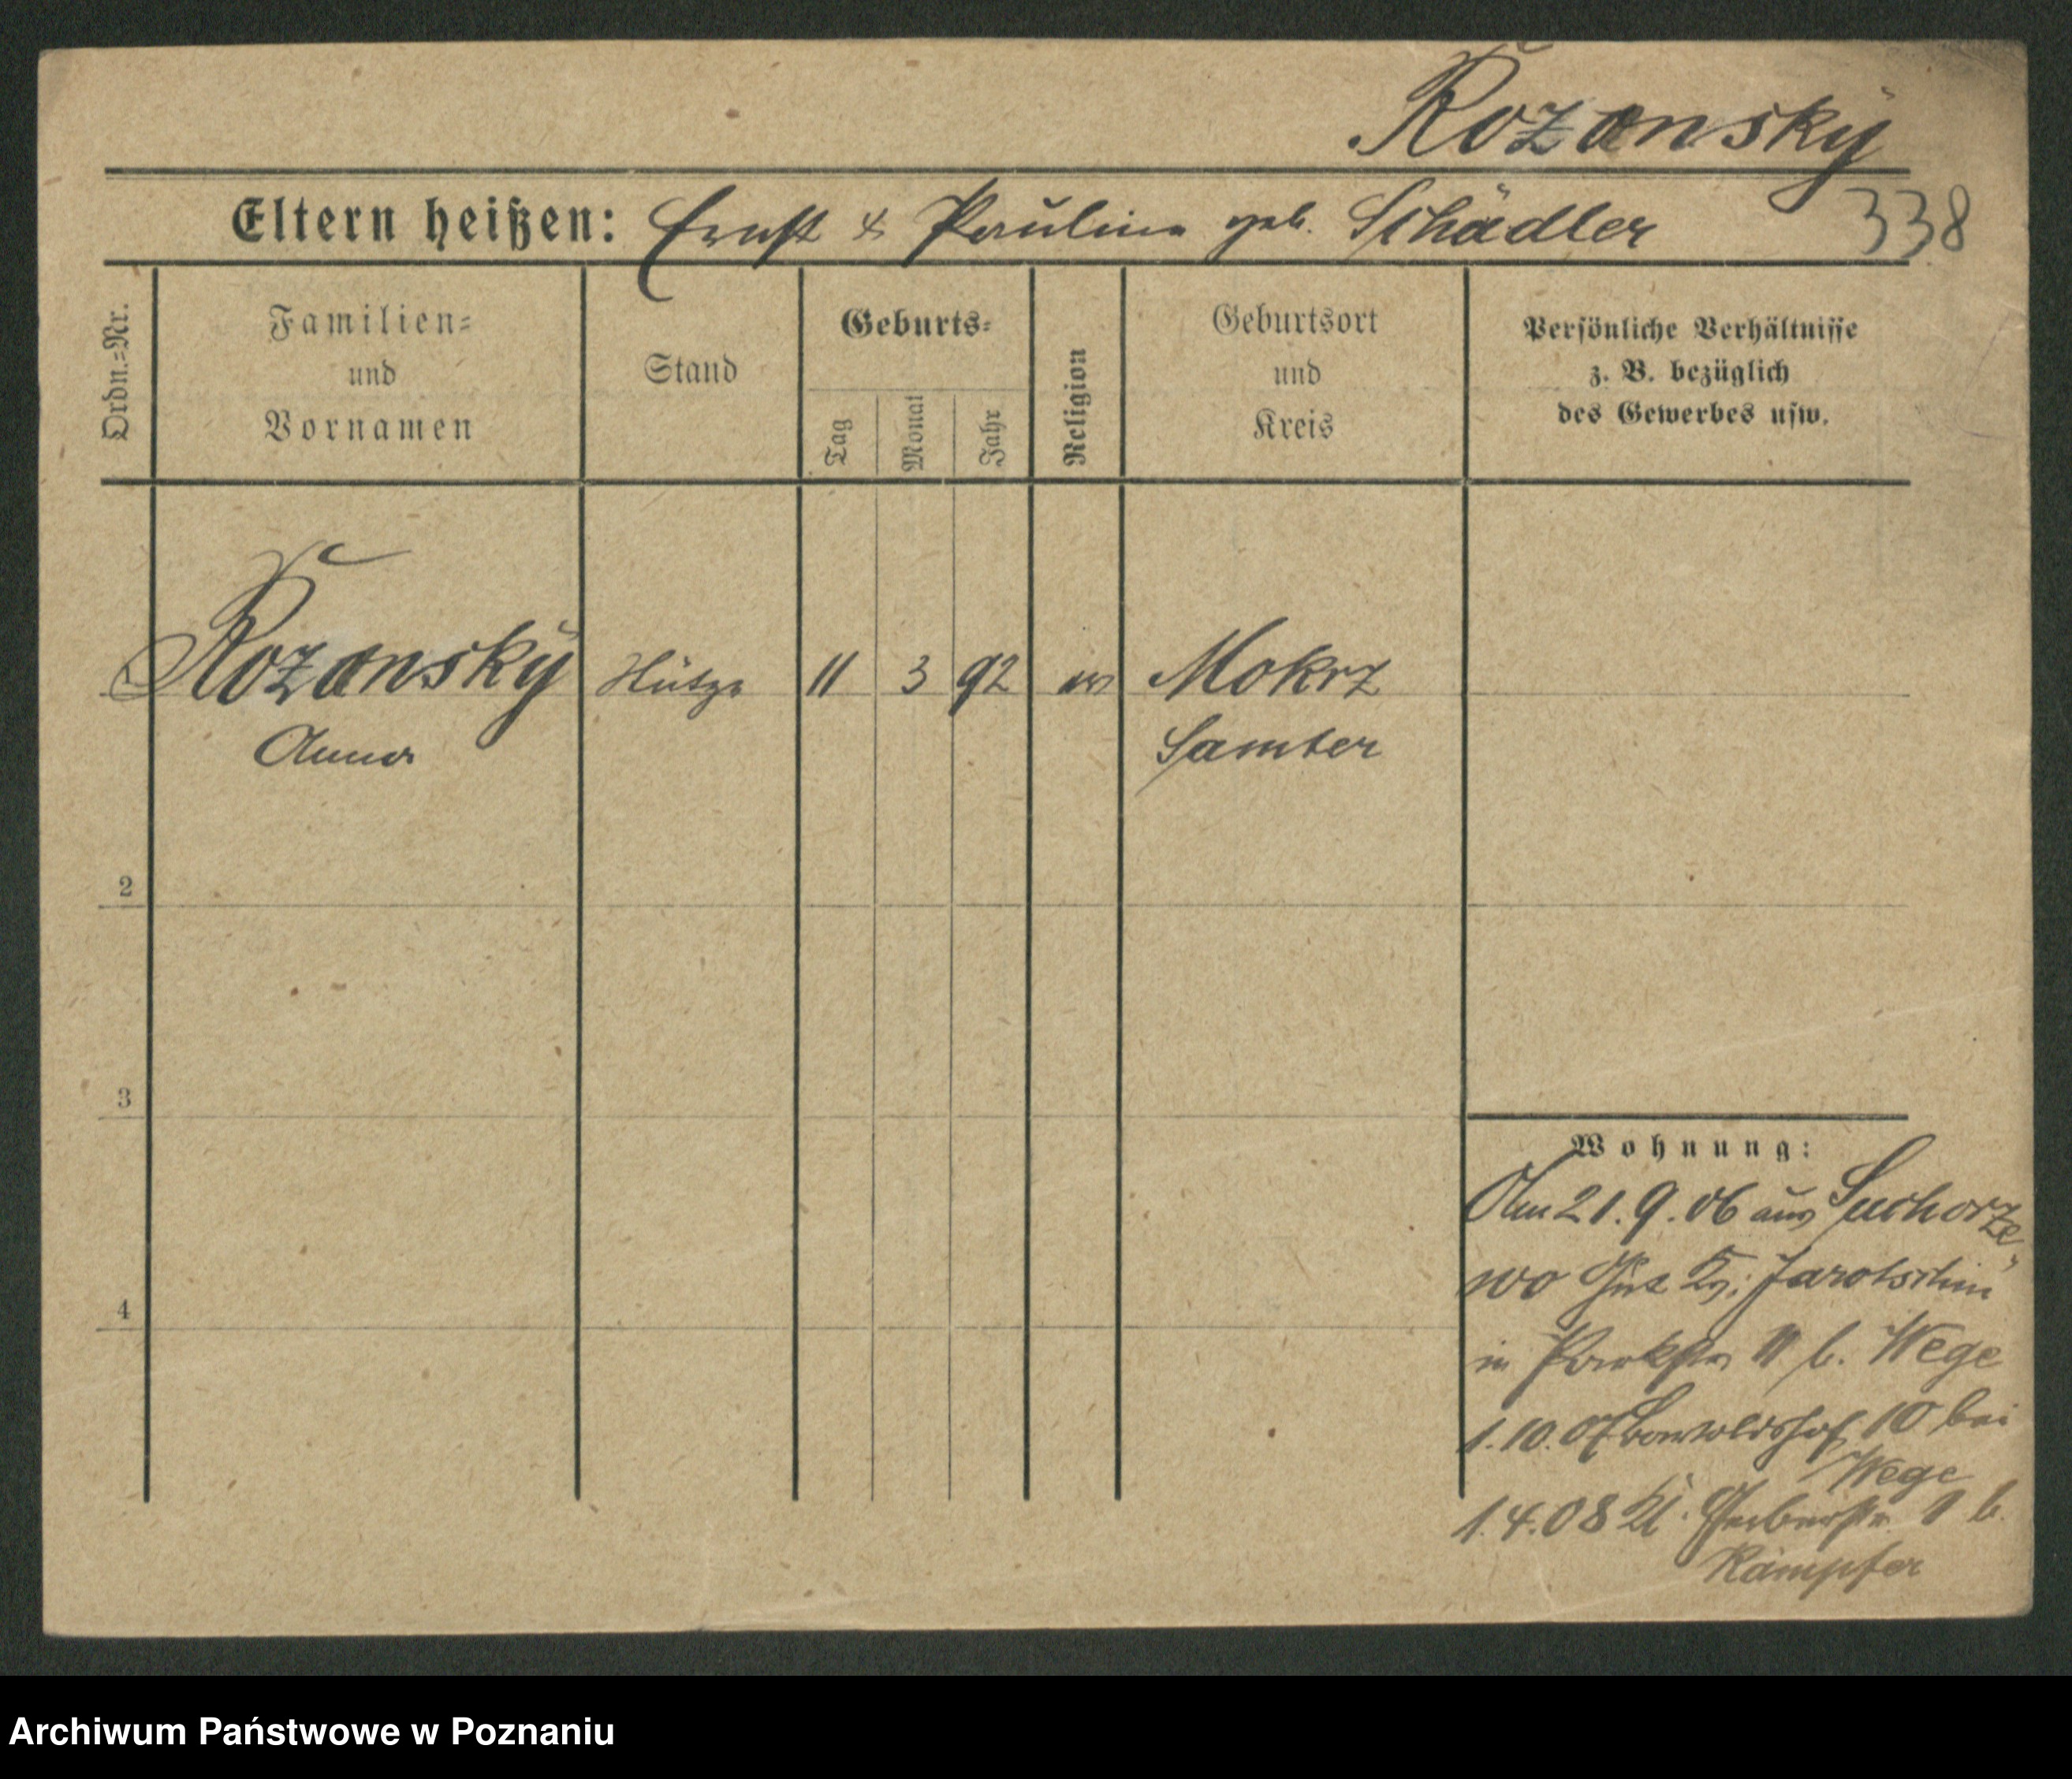 Rozansky
Eltern heißen: Ernst & Pauline geb. Schädler
338
Ordn.-Nr.
Familien-
und
Vornamen
Stand
Geburts-
Tag
Monat
Jahr
Religion
Geburtsort
und
Kreis
Persönliche Verhältnisse
z. B. bezüglich
des Gewerbes usw.
1
Rozansky
Anna
Stütze
11
3
92
ev
Mokrz
Samter
2
3
4
Wohnung:
Am 21.9.06 aus Suchorze-
wo Gut Kr: Jarotschin
in Parkstr b. Wege
1.10.07 10 bei
Wege
1.4.08 Kl. Gerberstr 1 b.
Kämpfer
Archiwum Państwowe w Poznaniu